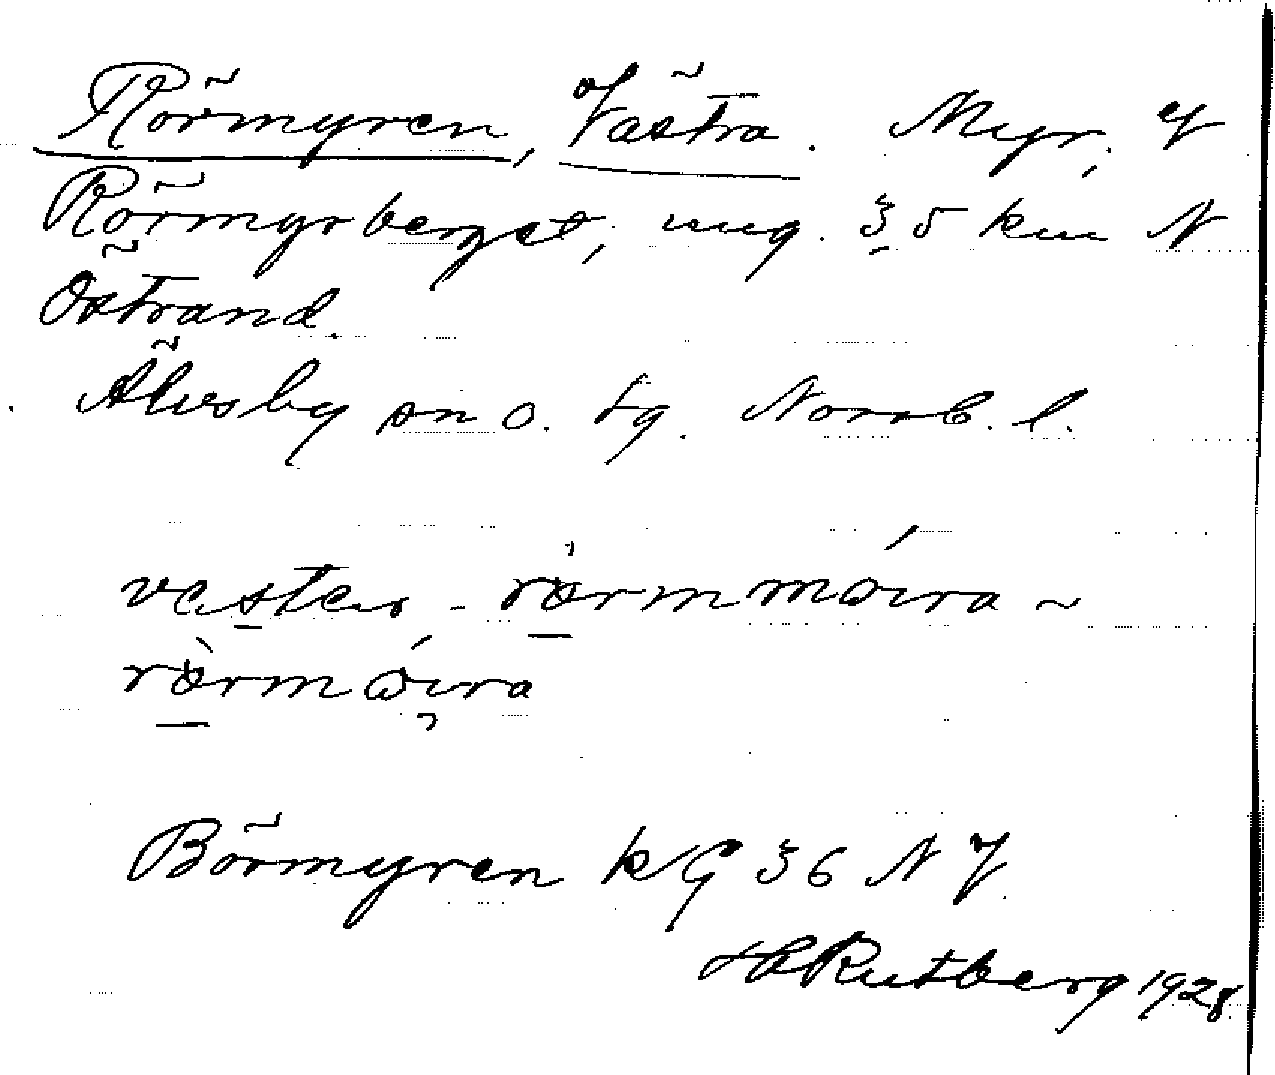 Rörmyren, Västra. Myr, V
Rörmyrberget, ung. 3,5 km N
Östrand.
Älvsby sn o. tg. Norrb. l.
vester - rörmmöıra ~
rörmöıra
Börmyren kG 36 NV
HRutberg 1928